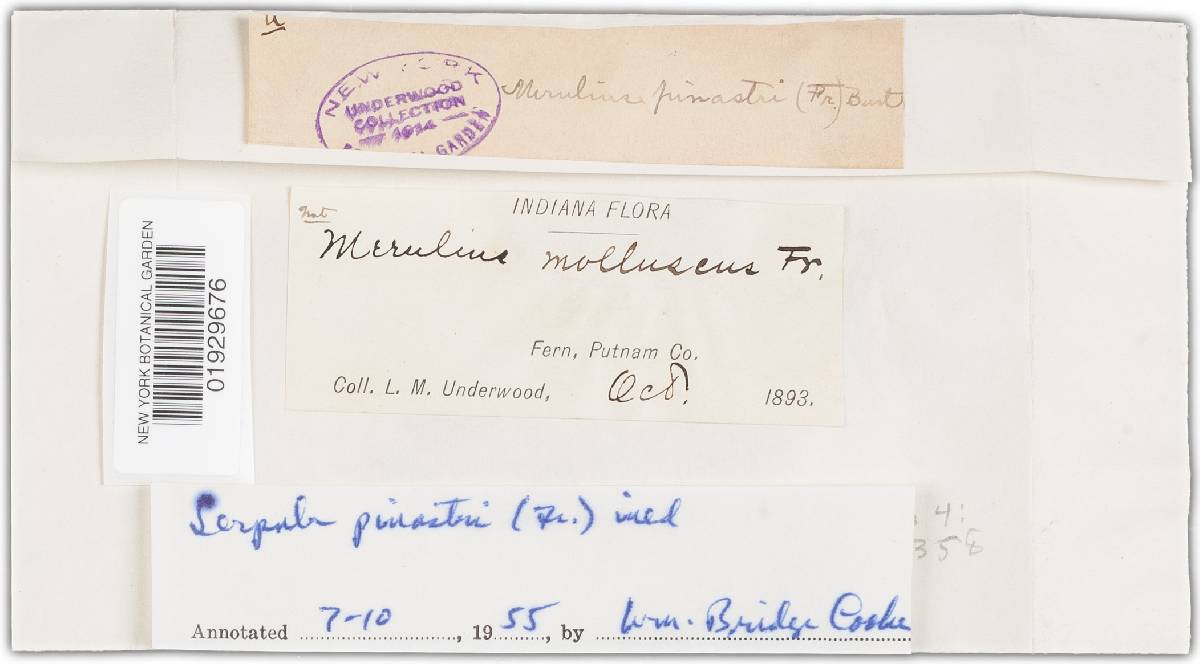 NEW YORK
UNDERWOOD
COLLECTION
1914
GARDEN
Merulius pinastri (Fr.) Burt
INDIANA FLORA
Merulius molluscus Fr.
Fern, Putnam Co.
Coll. L. M. Underwood, Oct. 1893.
NEW YORK BOTANICAL GARDEN
01929676
Serpula pinastri (Fr.) ined
4:
358
Annotated 7-10, 1955, by Wm. Bridge Cooke